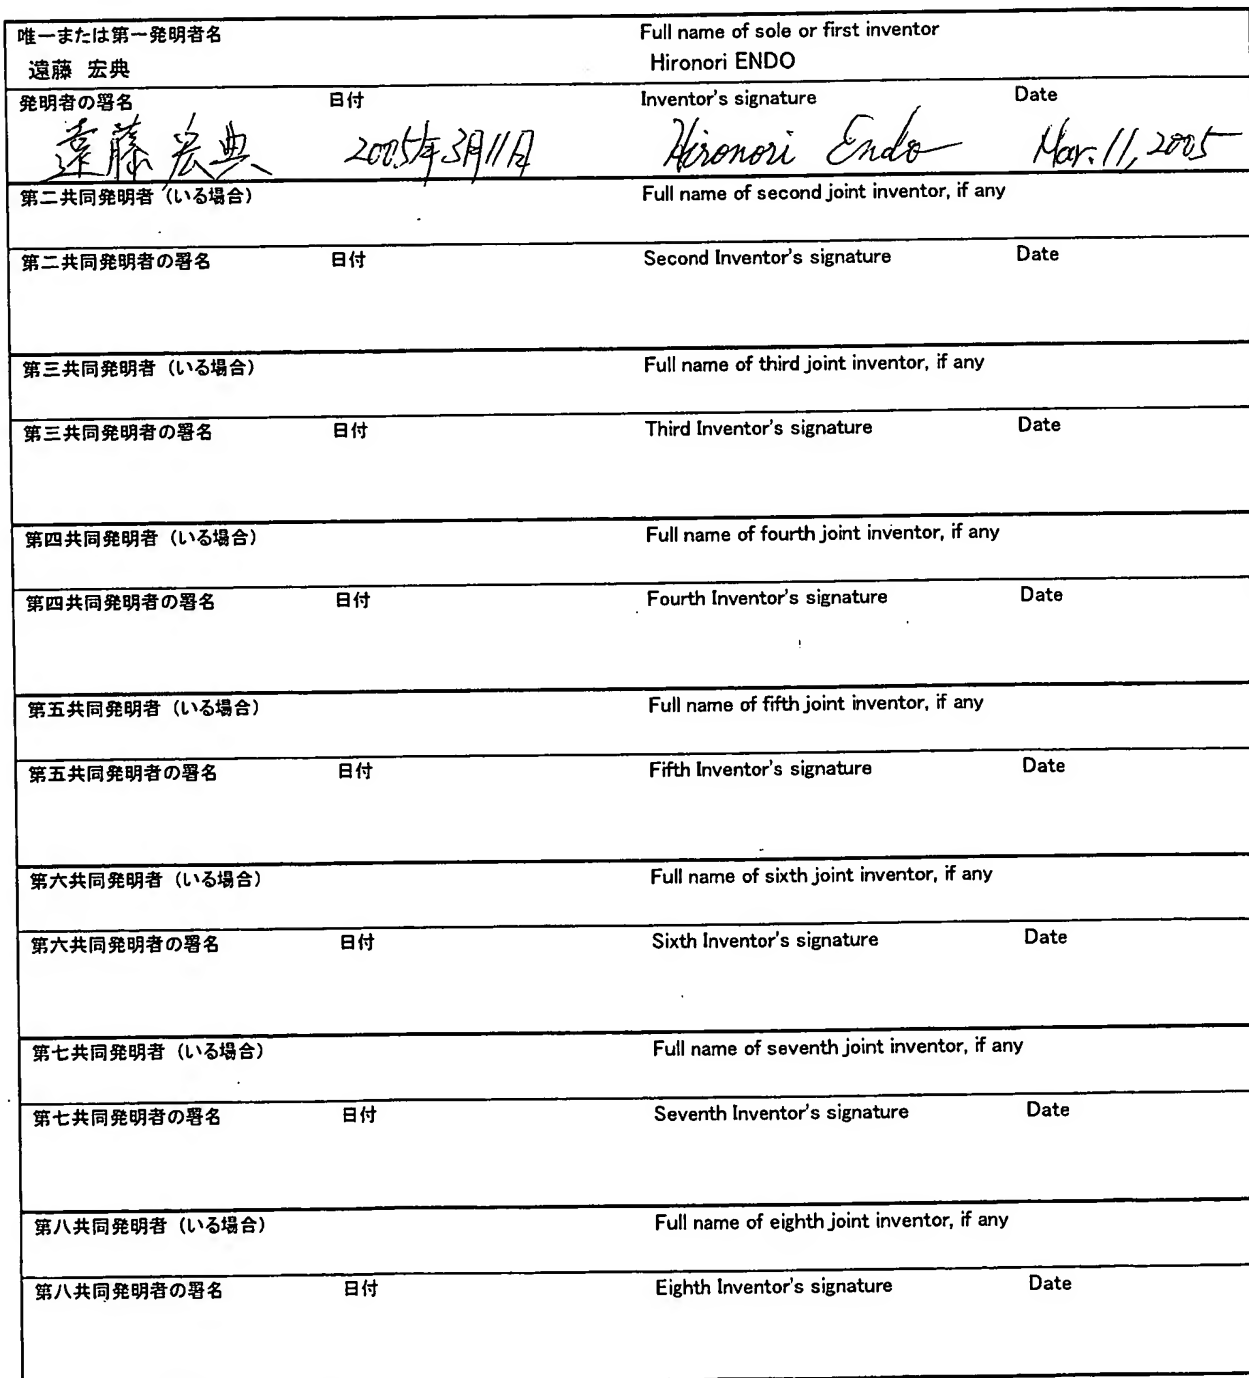 唯一または第一発明者名 Full name of sole or first inventor
遠藤 宏典 Hironori ENDO
発明者の署名 日付 Inventor's signature Date
遠藤宏典 2005年3月11日 Hironori Endo Mar. 11, 2005
第二共同発明者（いる場合） Full name of second joint inventor, if any
第二共同発明者の署名 日付 Second Inventor's signature Date
第三共同発明者（いる場合） Full name of third joint inventor, if any
第三共同発明者の署名 日付 Third Inventor's signature Date
第四共同発明者（いる場合） Full name of fourth joint inventor, if any
第四共同発明者の署名 日付 Fourth Inventor's signature Date
第五共同発明者（いる場合） Full name of fifth joint inventor, if any
第五共同発明者の署名 日付 Fifth Inventor's signature Date
第六共同発明者（いる場合） Full name of sixth joint inventor, if any
第六共同発明者の署名 日付 Sixth Inventor's signature Date
第七共同発明者（いる場合） Full name of seventh joint inventor, if any
第七共同発明者の署名 日付 Seventh Inventor's signature Date
第八共同発明者（いる場合） Full name of eighth joint inventor, if any
第八共同発明者の署名 日付 Eighth Inventor's signature Date